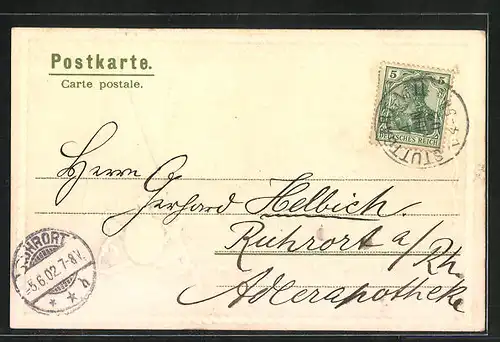 Postkarte.
Carte postale.
5 5
DEUTSCHES REICH
STUTTG
Herrn
Gerhard Helbich.
Ruhrort a/Rh.
Adlerapotheke
RUHRORT
-5.6.02.7-8V.
* * q